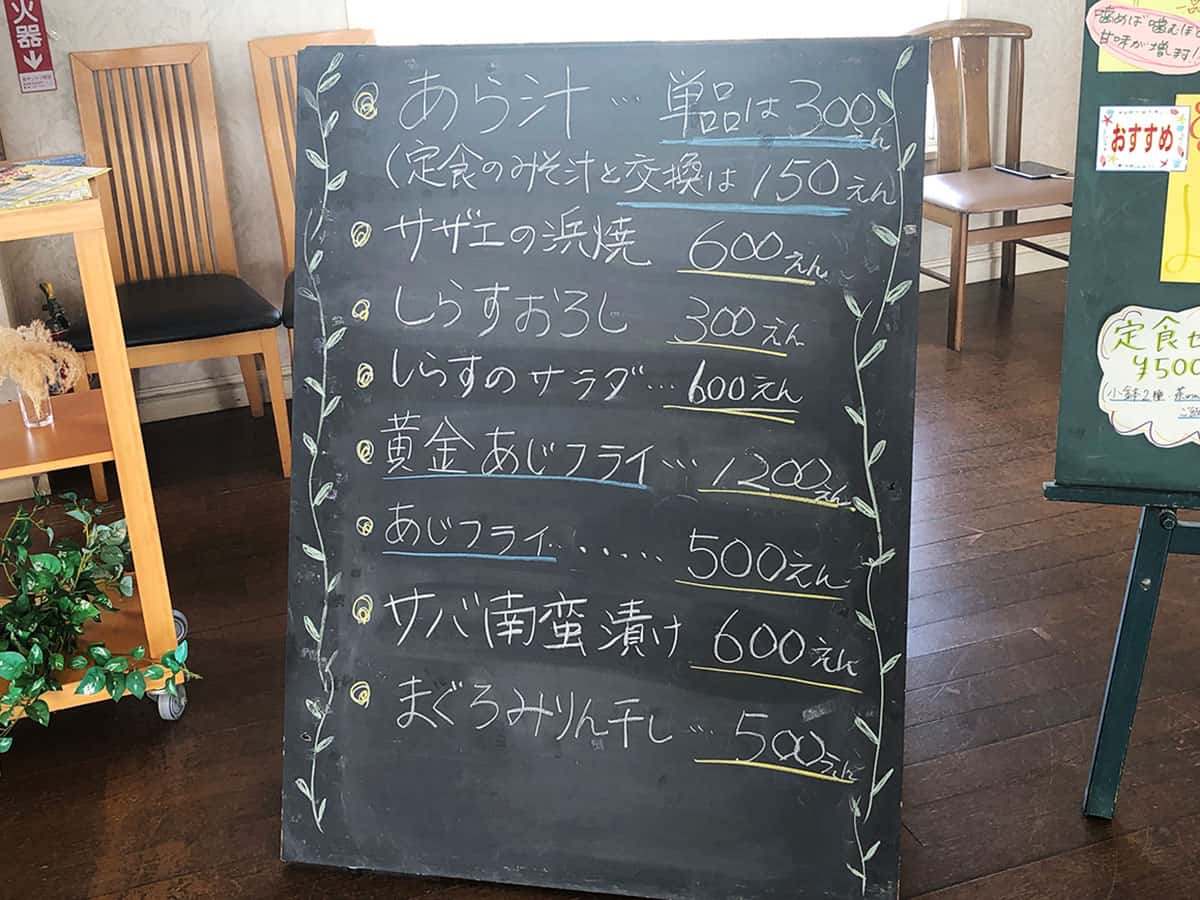 火器
あら汁… 単品は300えん
(定食のみそ汁と交換は150えん
サザエの浜焼 600えん
しらすおろし 300えん
しらすのサラダ… 600えん
黄金あじフライ… 1200えん
あじフライ...... 500えん
サバ南蛮漬け 600えん
まぐろみりん干し… 500えん
噛めば噛むほど
甘味が増します!
おすすめ
定食セ
¥500
小鉢2種